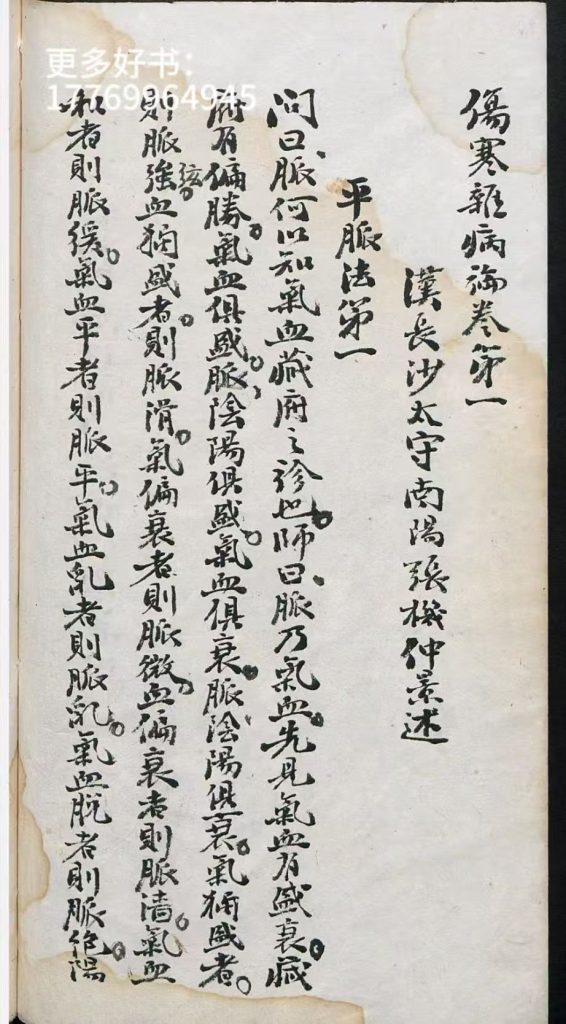 更多好书：
17769964945
傷寒雜病論卷第一
漢長沙太守南陽張機仲景述
平脈法第一
問曰、脈何以知氣血藏府之診也。師曰、脈乃氣血先見、氣血有盛衰。臟
府有偏勝。氣血俱盛。脈陰陽俱盛。氣血俱衰。脈陰陽俱衰。氣獨盛者。
則脈強。血獨盛者。則脈滑。氣偏衰者。則脈微。血偏衰者。則脈濇。氣血
弦
和者。則脈緩。氣血平者。則脈平。氣血亂者。則脈亂。氣血脫者。則脈絕。陽